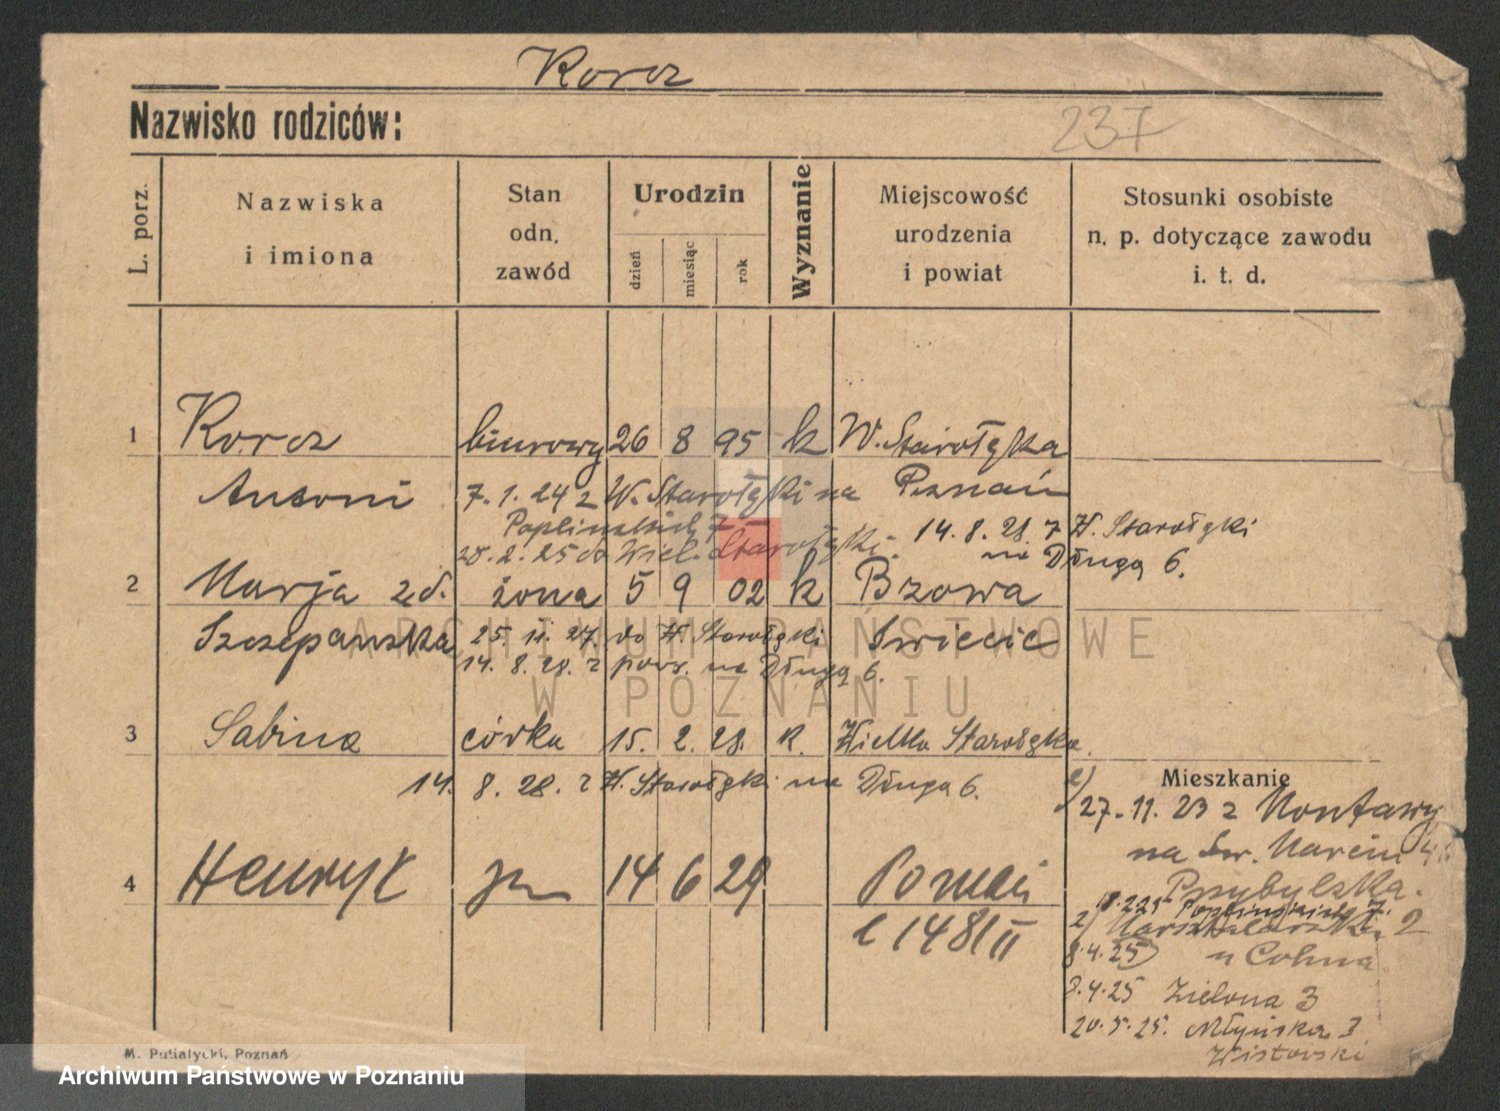 Korcz
Nazwisko rodziców:
237
L. porz.
Nazwiska i imiona
Stan odn. zawód
Urodzin
dzień
miesiąc
rok
Wyznanie
Miejscowość urodzenia i powiat
Stosunki osobiste n. p. dotyczące zawodu i. t. d.
1 Korcz biurowy 26 8 95 k W. Starołęka
Antoni 7. 1. 24 z W. Starołęki na Poznań
Poplińskich 7
14. 8. 28. z W. Starołęki
28. 2. 25 do Wiel. Starołęki.
na Długą 6.
2 Marja zd. żona 5 9 02 k Brzowa
Szczepańska 25. 11. 27 do W. Starołęki Świecie
14. 8. 28. z pow. na Długą 6.
3 Sabina córka 15. 2. 28. k. Wielka Starołęka.
14. 8. 28. z W. Starołęki na Długą 6.
Mieszkanie
27. 11. 23 z Montawy
na Św. Marcin
4 Henryk syn 14 6 29 Poznań
Przybylska.
Poplińskich 7.
2/ Marszałarska 2
l 148/II
8.4.25 u Cohna
8.4.25 Zielona 3
20.5.25. Młyńska 3
Wistorski
M. Putiatycki, Poznań
ARCHIWUM PAŃSTWOWE
W POZNANIU
Archiwum Państwowe w Poznaniu